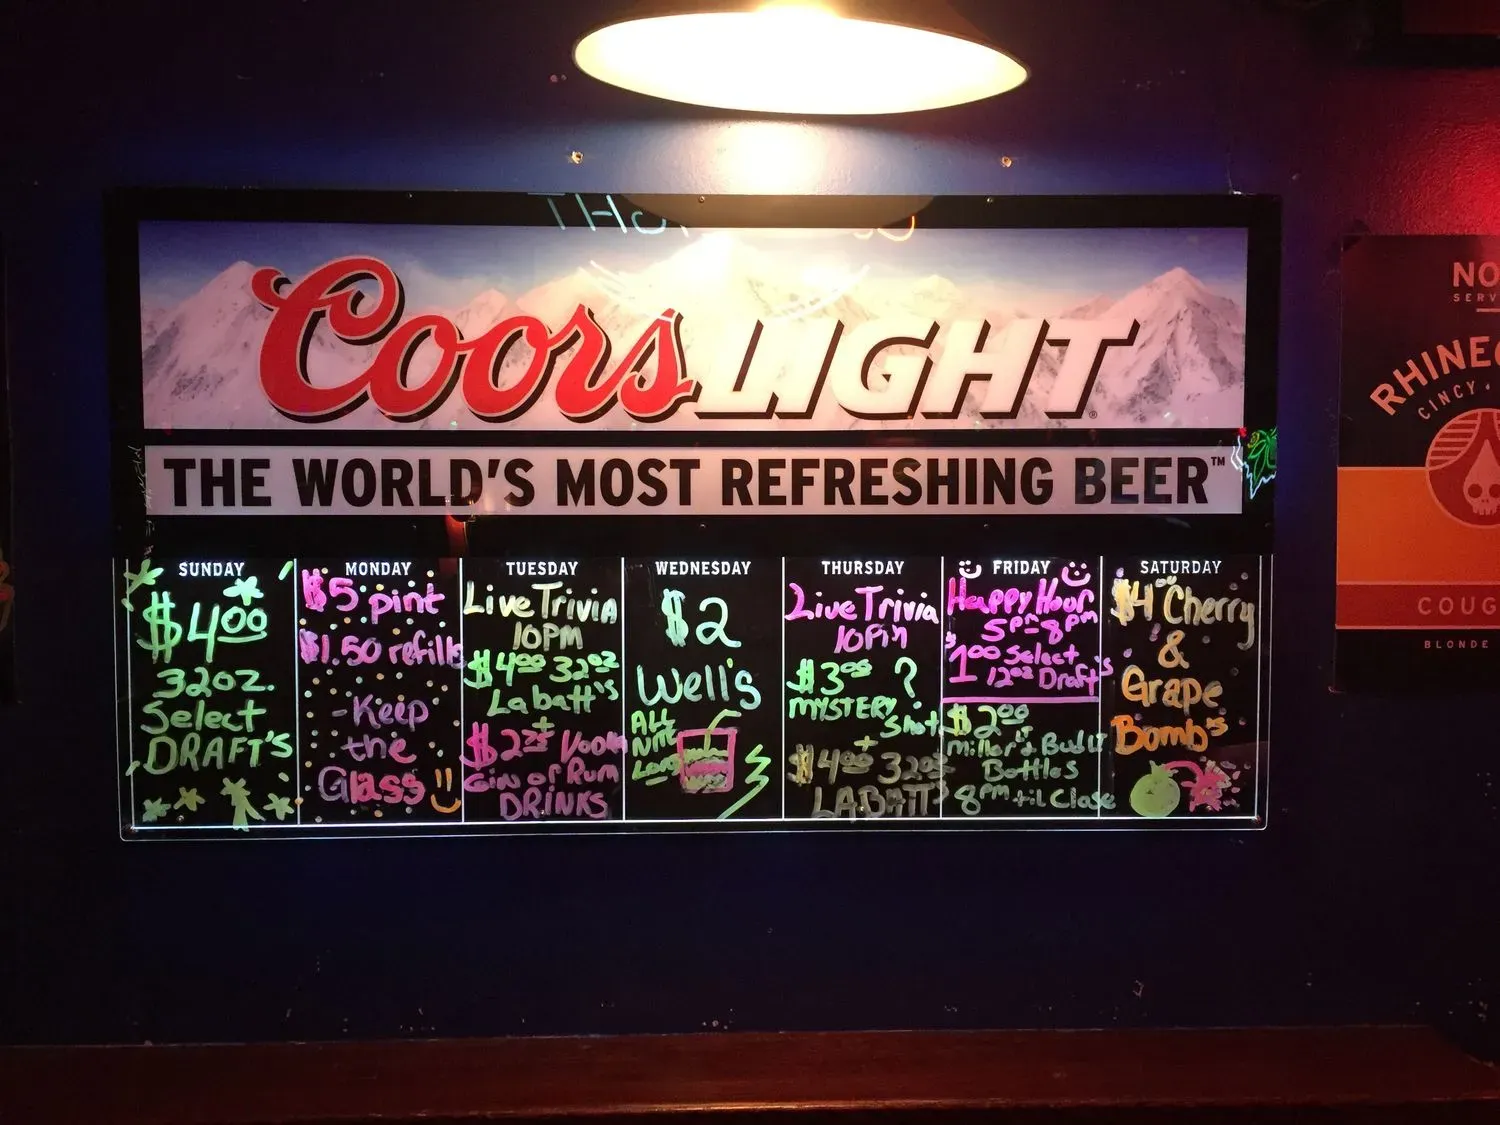 Coors LIGHT®
THE WORLD'S MOST REFRESHING BEER™
SUNDAY
$4.00
32oz.
Select
DRAFT'S
MONDAY
$5 pint
$1.50 refills
-Keep
the
Glass
TUESDAY
Live Trivia
10PM
$4.00 32oz
Labatt's
+
Gin or Rum
DRINKS
WEDNESDAY
$2
Well's
ALL
NITE
LONG
THURSDAY
Live Trivia
10Pm
?
MYSTERY
Shot
+
$4.00 32oz
LABATT'S
FRIDAY
Happy Hour
5pm-8pm
1.00 Select
12oz Draft's
$2.00
Bottles
8pm til Close
SATURDAY
$4.00 Cherry
&
Grape
Bomb's
NO
SERV
RHINEG
CINCY
COUG
BLONDE